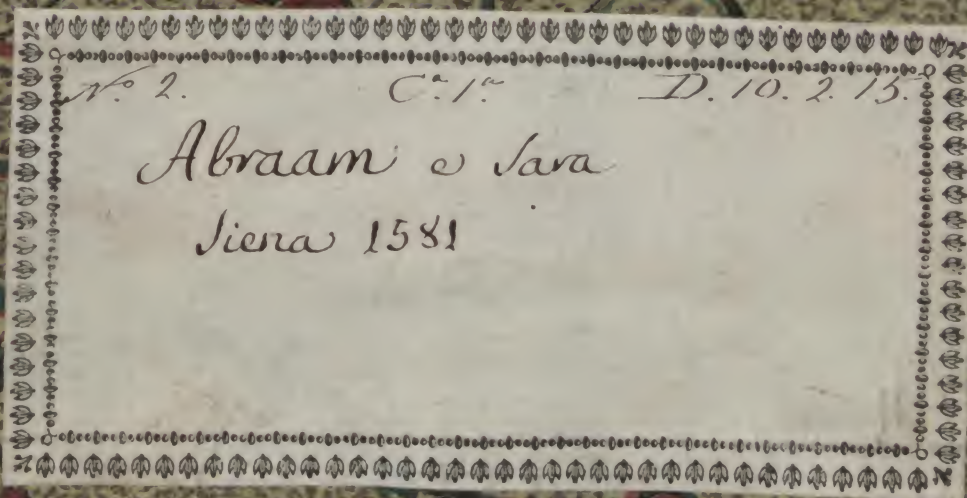 Nº 2. Cª 1ª D. 10. 2. 15.
Abraam e Sara
Siena 1581